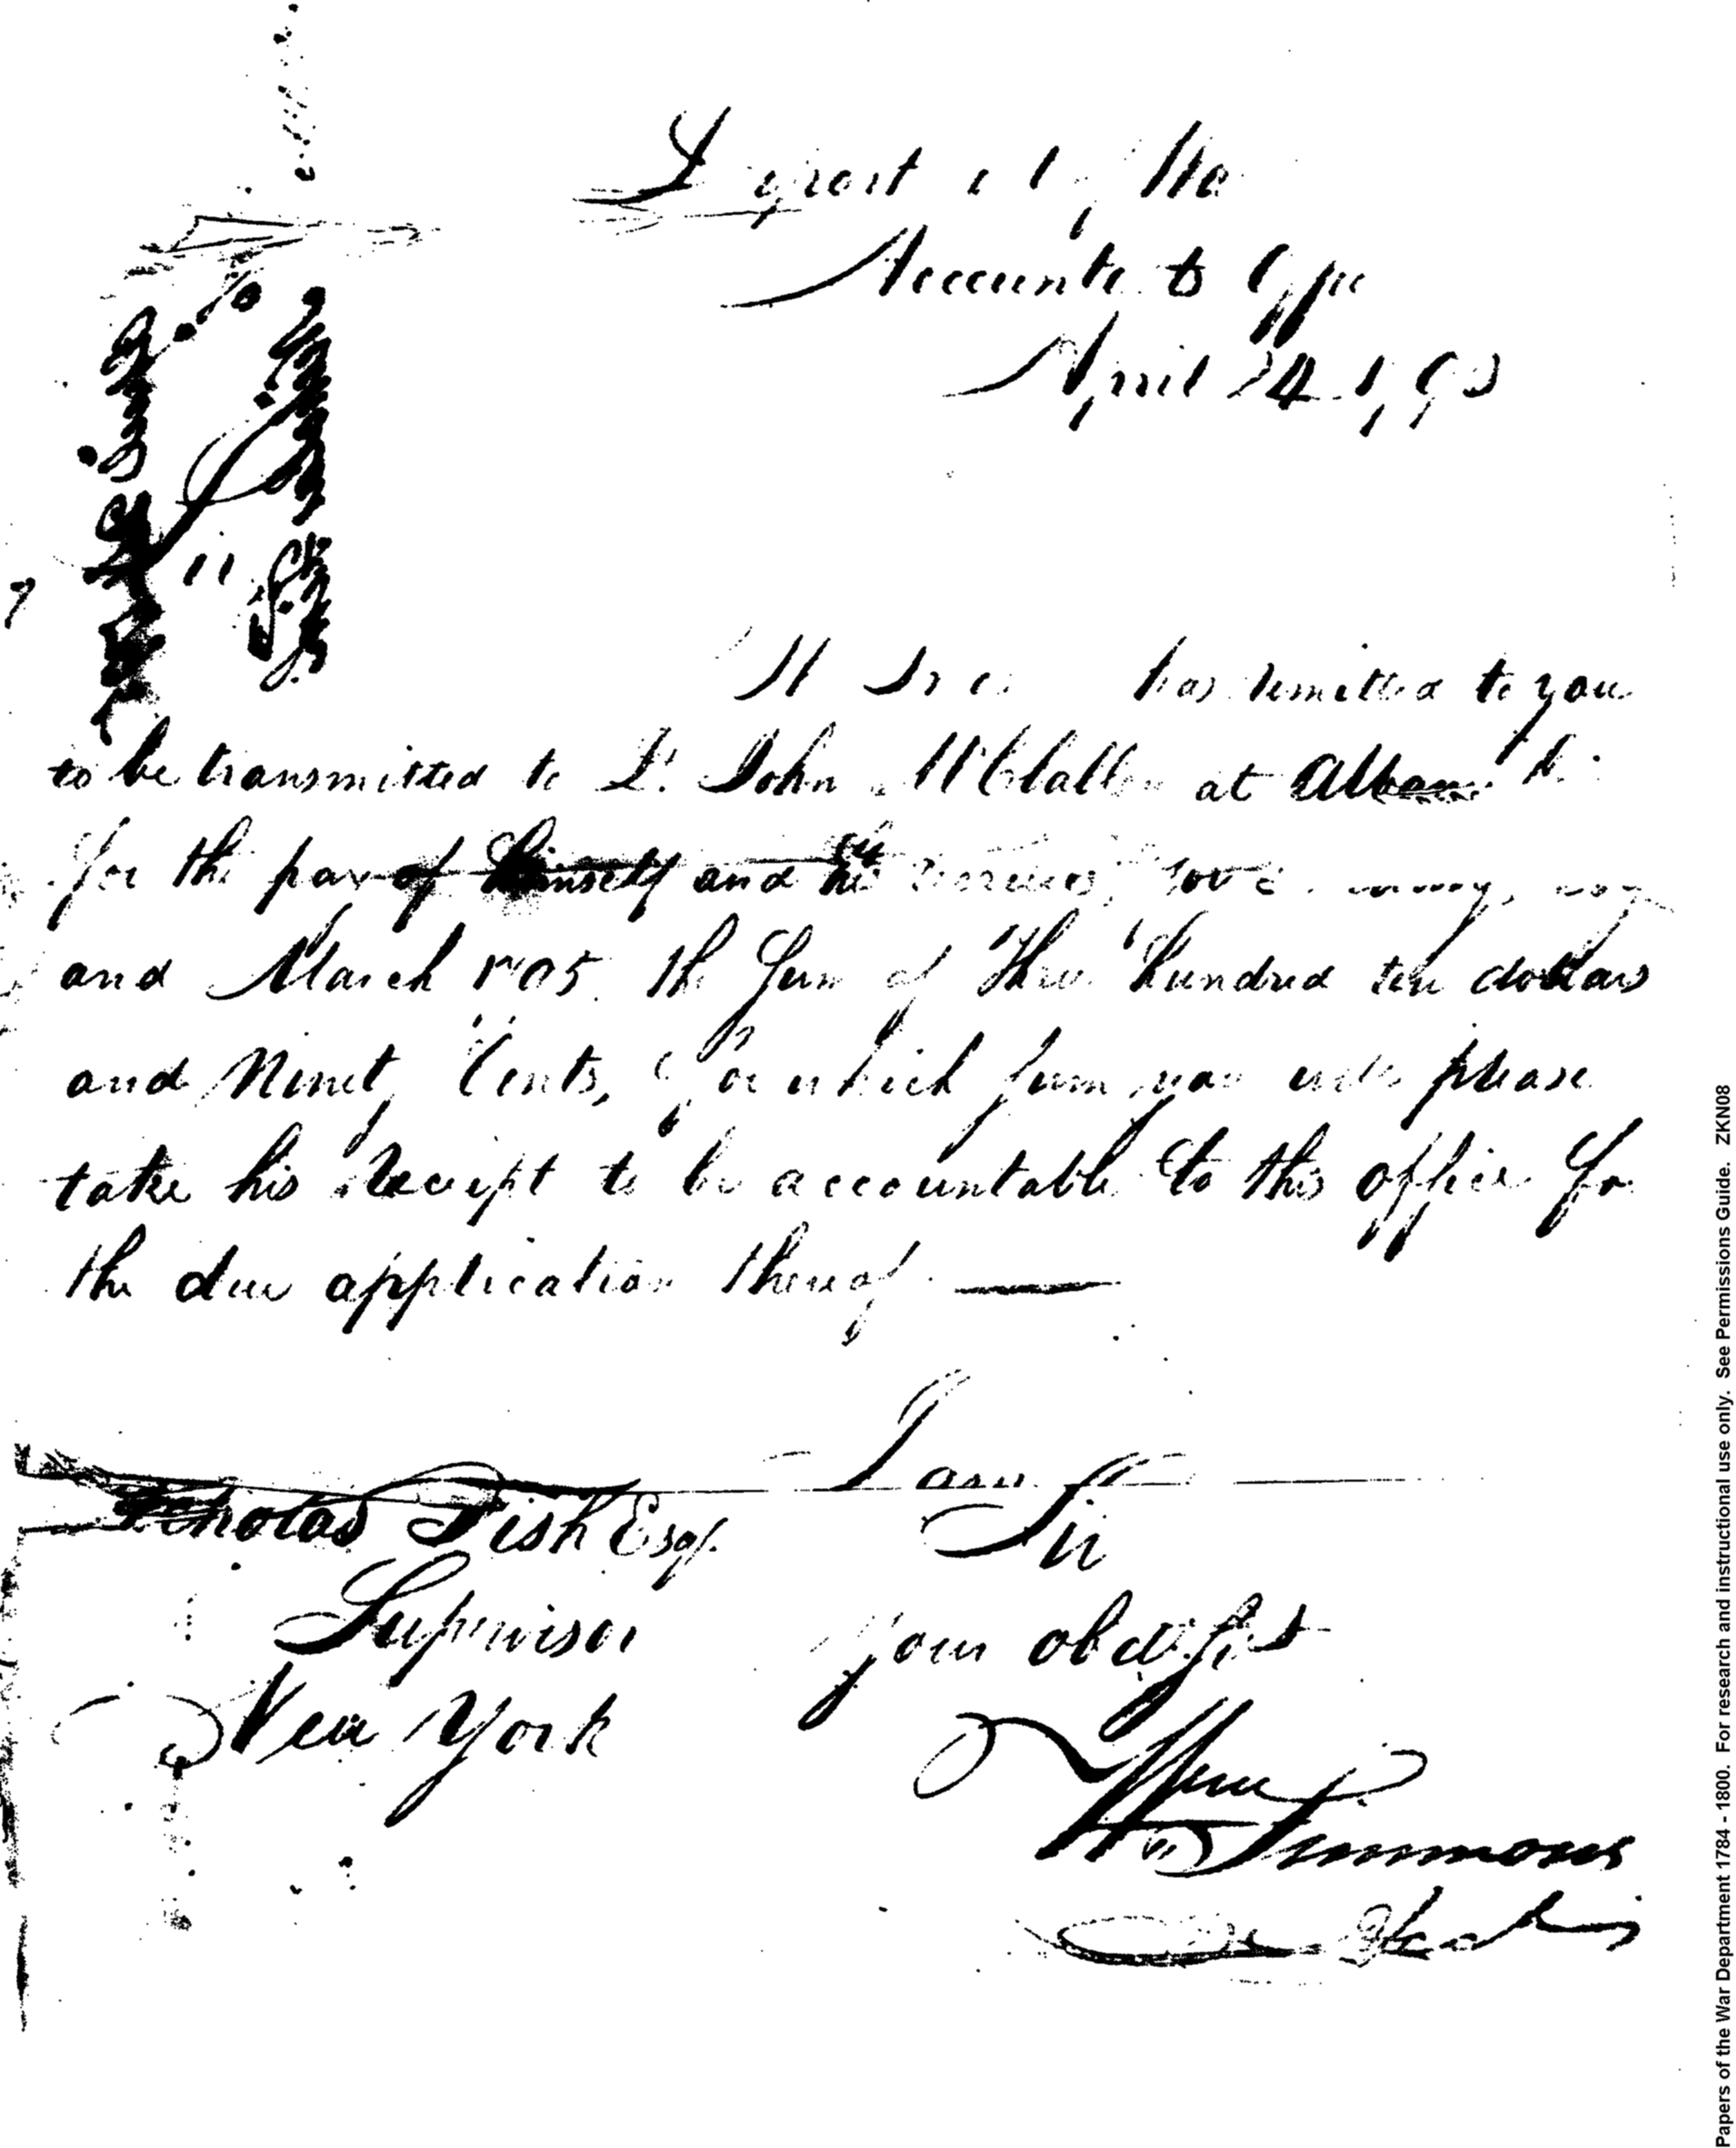 Accounts Office
April 24 1795
Sir
has remitted to you
to be transmitted to Lt. John McClallen at Albany
for the pay of himself and his
and March 1795 the Sum of Three hundred ten dollars
and Ninety Cents, for which sum you will please
take his Receipt to be accountable to this office for
the due application thereof —
I am
Sir
Nicholas Fish Esqr.
Supervisor
New York
your obd Srt
Wm Simmons
Papers of the War Department 1784 - 1800. For research and instructional use only. See Permissions Guide. ZKN08